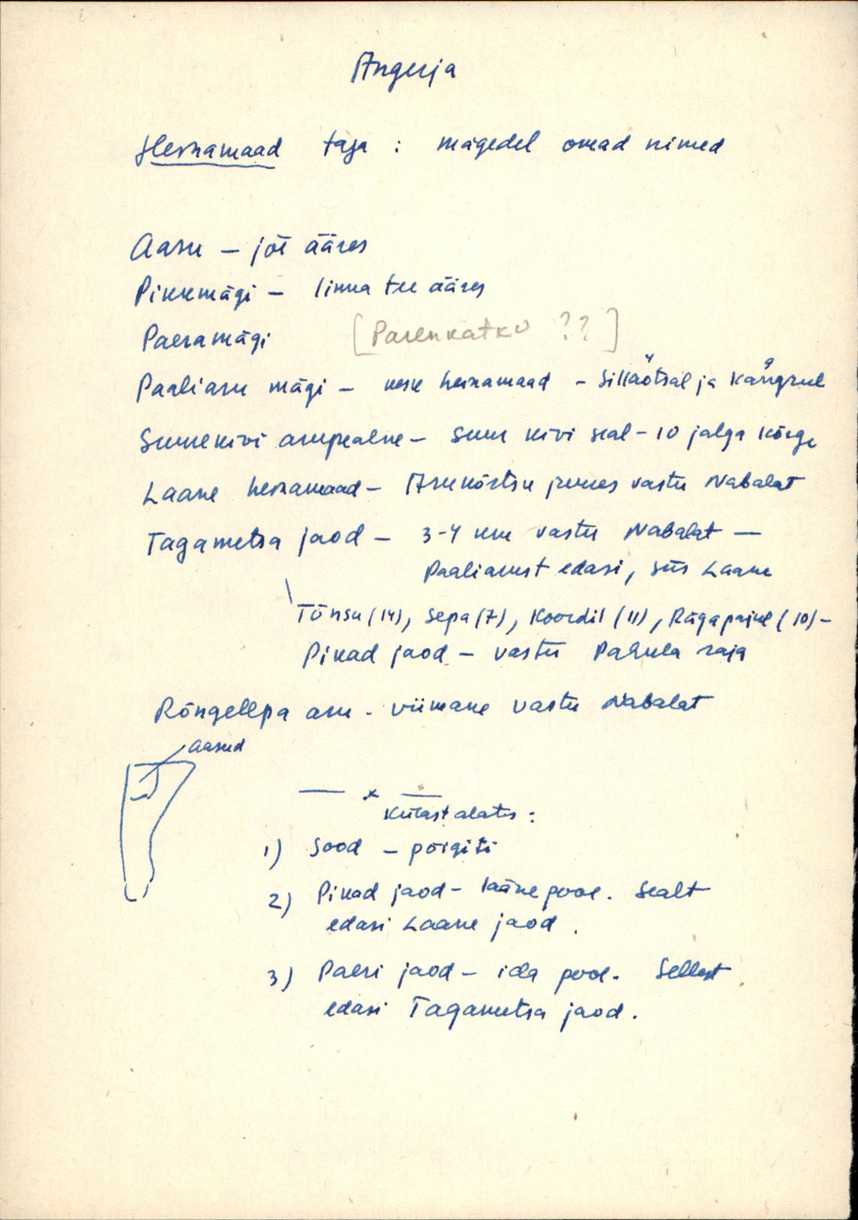 Angerja
Heinamaad taga : mägedel omad nimed
Aasu – jõe ääres
Pikkmägi – linna tee ääres
Paeramägi [Parenkatku ??]
Paaliasu mägi – kesk heinamaad – Sikaotsal ja Kangrul
Suurekivi asupealne – suur kivi seal – 10 jalga kõrge
Laane heinamaad – Asukõrtsu juures vastu Nabalat
Tagametsa jaod – 3-4 km vastu Nabalat –
Paaliasust edasi, siis Laane
Tõnsu (14), Sepa (7), Koordil (11), Rägapajul (10) –
Pikad jaod – vastu Pahkla raja
Rõngelepa asu – viimane vastu Nabalat
aasud
— x —
Külast alates :
1) Sood – põigiti
2) Pikad jaod – lääne pool. Sealt
edasi Laane jaod .
3) Paeri jaod – ida pool. Sellest
edasi Tagametsa jaod .